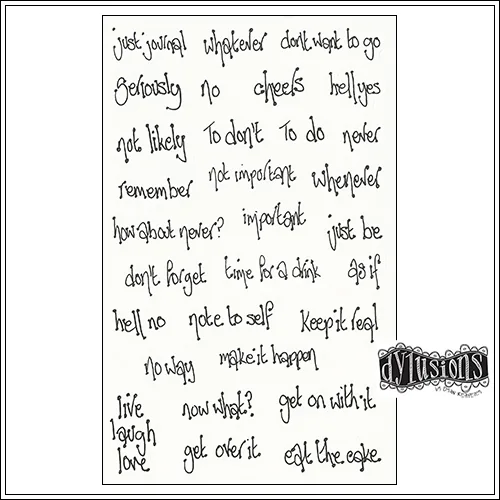 just journal whatever don't want to go
Seriously no cheers hell yes
not likely To don't To do never
remember not important whenever
how about never? important just be
don't forget time for a drink as if
hell no note to self Keep it real
no way make it happen
live
laugh
love
now what? get on with it
get over it eat the cake
dylusions
by Dyan Reaveley